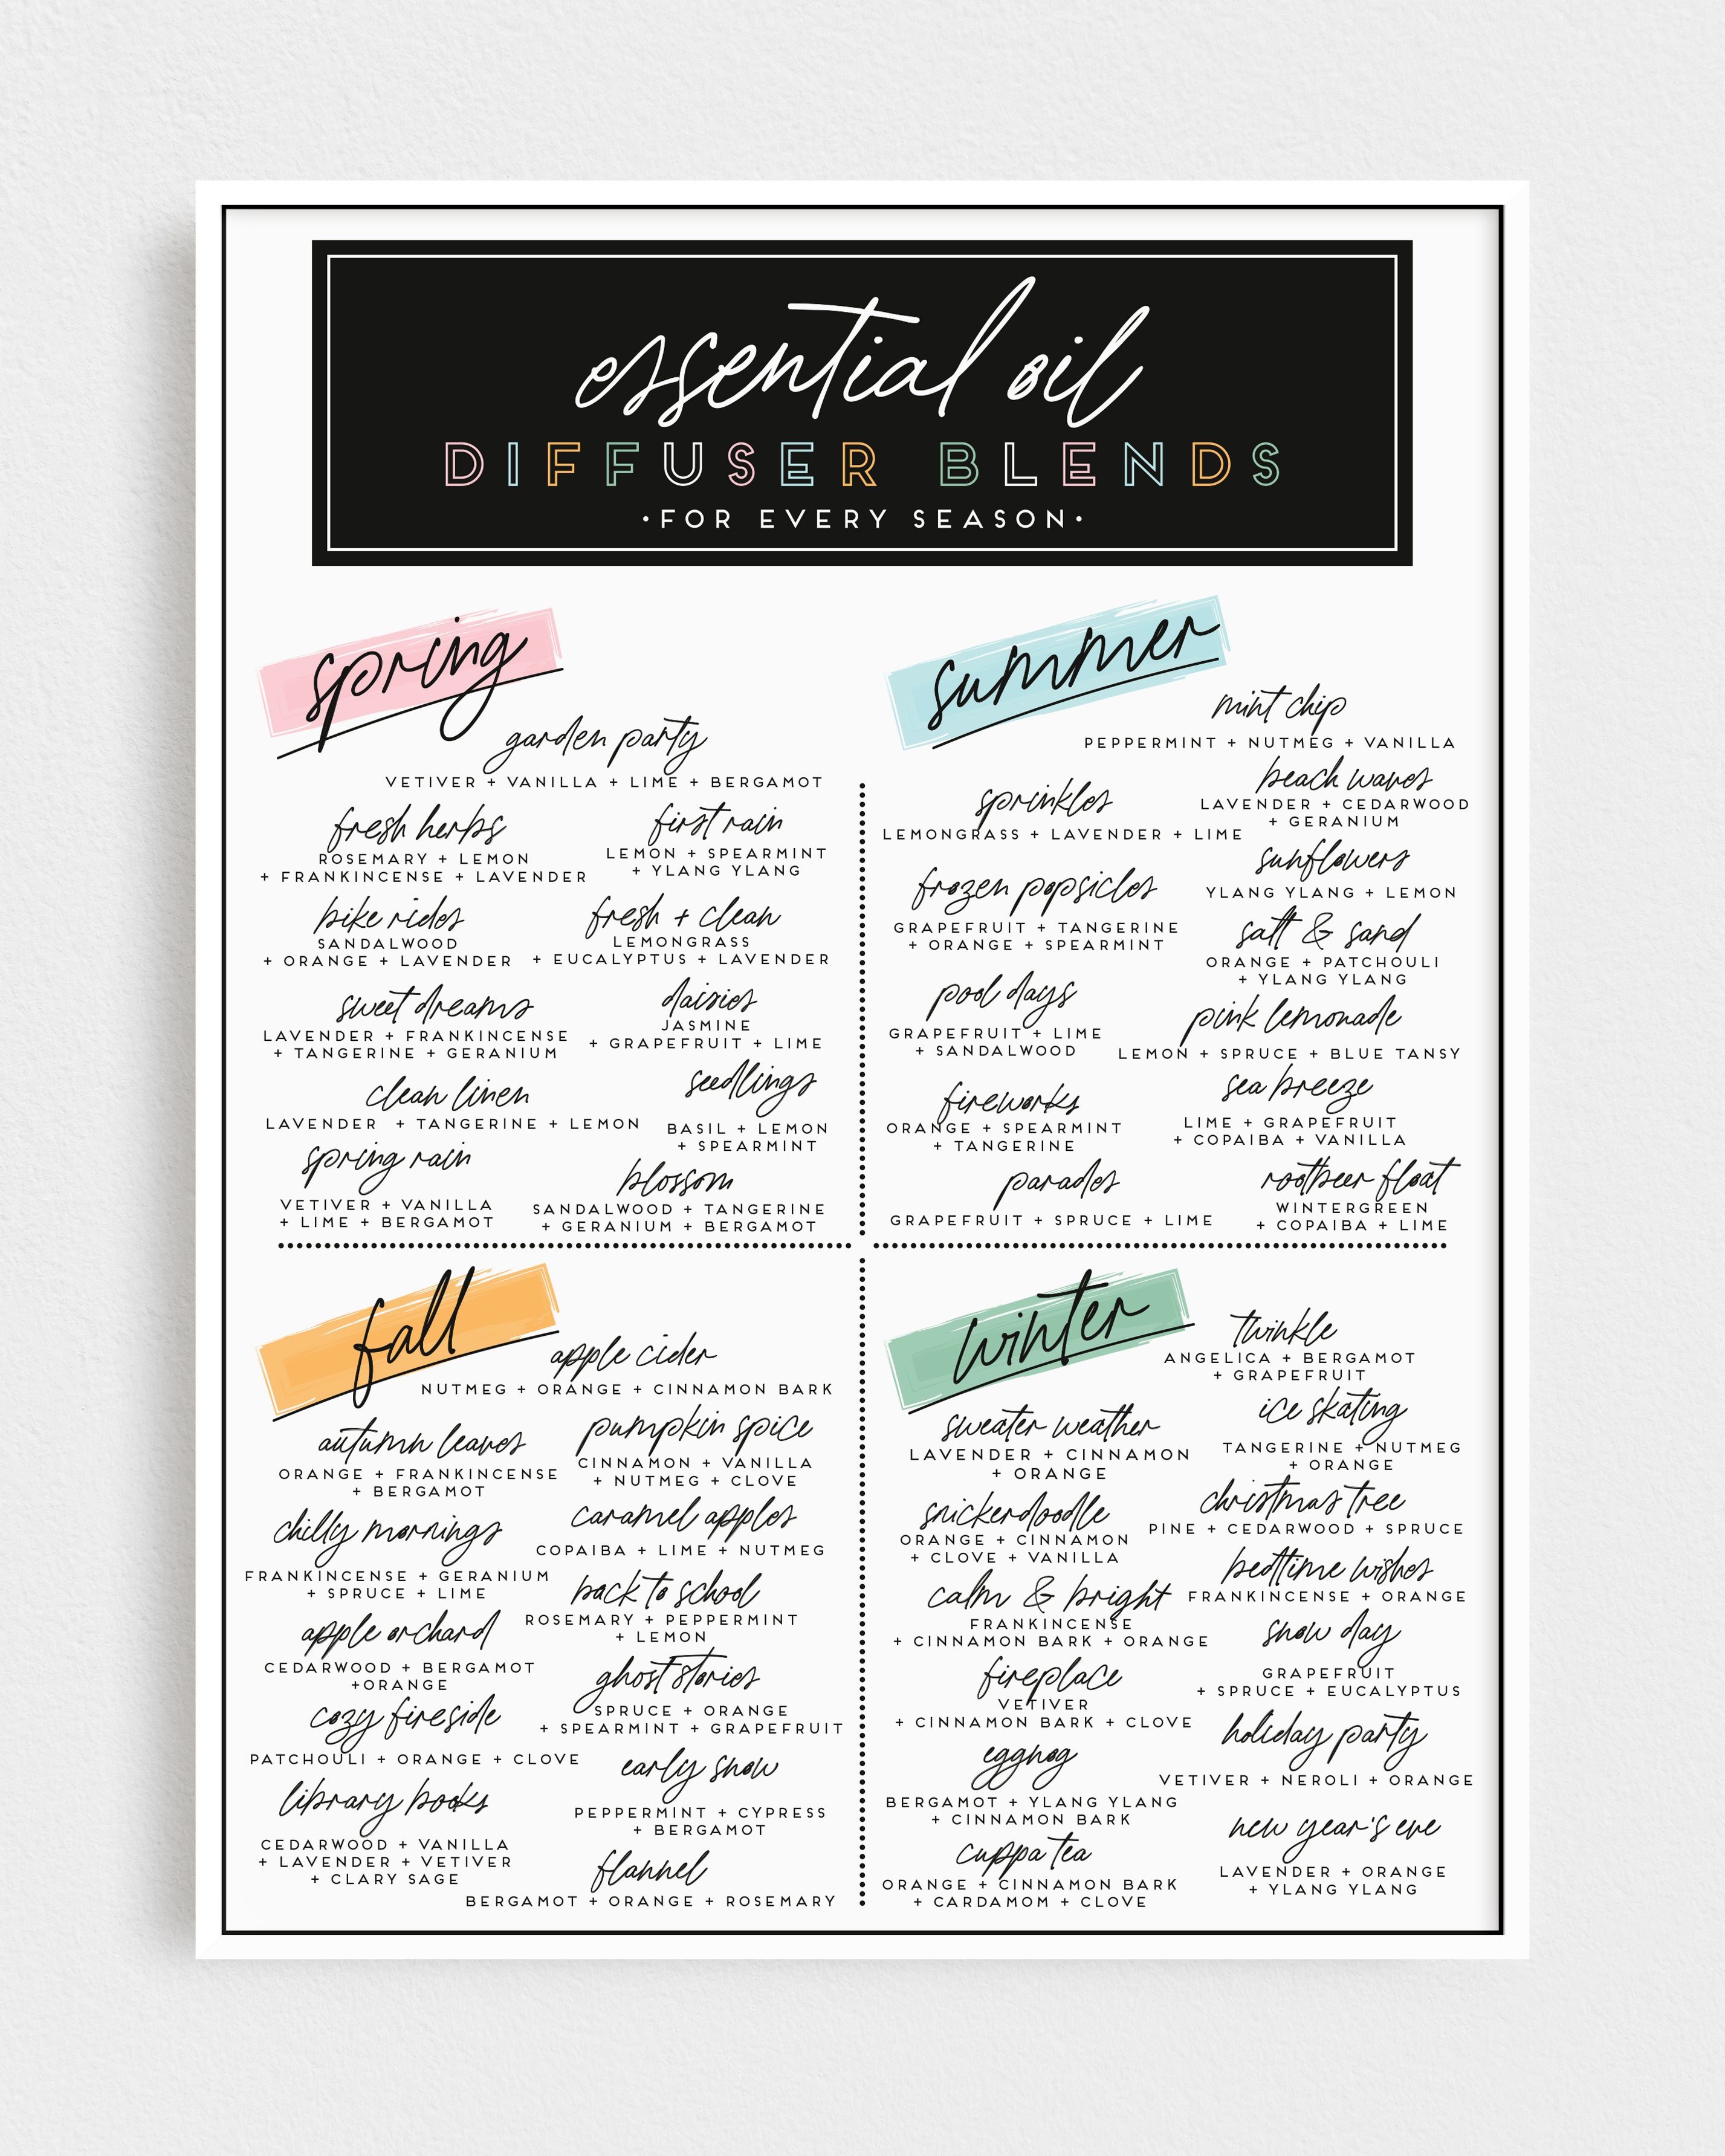 essential oil
DIFFUSER BLENDS
•FOR EVERY SEASON•
spring
garden party
VETIVER + VANILLA + LIME + BERGAMOT
fresh herbs
ROSEMARY + LEMON
+ FRANKINCENSE + LAVENDER
first rain
LEMON + SPEARMINT
+ YLANG YLANG
bike rides
SANDALWOOD
+ ORANGE + LAVENDER
fresh + clean
LEMONGRASS
+ EUCALYPTUS + LAVENDER
sweet dreams
LAVENDER + FRANKINCENSE
+ TANGERINE + GERANIUM
daisies
JASMINE
+ GRAPEFRUIT + LIME
clean linen
LAVENDER + TANGERINE + LEMON
seedlings
BASIL + LEMON
+ SPEARMINT
spring rain
VETIVER + VANILLA
+ LIME + BERGAMOT
blossom
SANDALWOOD + TANGERINE
+ GERANIUM + BERGAMOT
summer
mint chip
PEPPERMINT + NUTMEG + VANILLA
sprinkles
LEMONGRASS + LAVENDER + LIME
beach waves
LAVENDER + CEDARWOOD
+ GERANIUM
frozen popsicles
GRAPEFRUIT + TANGERINE
+ ORANGE + SPEARMINT
sunflowers
YLANG YLANG + LEMON
salt & sand
ORANGE + PATCHOULI
+ YLANG YLANG
pool days
GRAPEFRUIT + LIME
+ SANDALWOOD
pink lemonade
LEMON + SPRUCE + BLUE TANSY
fireworks
ORANGE + SPEARMINT
+ TANGERINE
sea breeze
LIME + GRAPEFRUIT
+ COPAIBA + VANILLA
parades
GRAPEFRUIT + SPRUCE + LIME
rootbeer float
WINTERGREEN
+ COPAIBA + LIME
fall
apple cider
NUTMEG + ORANGE + CINNAMON BARK
autumn leaves
ORANGE + FRANKINCENSE
+ BERGAMOT
pumpkin spice
CINNAMON + VANILLA
+ NUTMEG + CLOVE
chilly mornings
FRANKINCENSE + GERANIUM
+ SPRUCE + LIME
caramel apples
COPAIBA + LIME + NUTMEG
back to school
ROSEMARY + PEPPERMINT
+ LEMON
apple orchard
CEDARWOOD + BERGAMOT
+ORANGE
ghost stories
SPRUCE + ORANGE
+ SPEARMINT + GRAPEFRUIT
cozy fireside
PATCHOULI + ORANGE + CLOVE
early snow
PEPPERMINT + CYPRESS
+ BERGAMOT
library books
CEDARWOOD + VANILLA
+ LAVENDER + VETIVER
+ CLARY SAGE
flannel
BERGAMOT + ORANGE + ROSEMARY
winter
twinkle
ANGELICA + BERGAMOT
+ GRAPEFRUIT
sweater weather
LAVENDER + CINNAMON
+ ORANGE
ice skating
TANGERINE + NUTMEG
+ ORANGE
snickerdoodle
ORANGE + CINNAMON
+ CLOVE + VANILLA
christmas tree
PINE + CEDARWOOD + SPRUCE
calm & bright
FRANKINCENSE
+ CINNAMON BARK + ORANGE
bedtime wishes
FRANKINCENSE + ORANGE
snow day
GRAPEFRUIT
+ SPRUCE + EUCALYPTUS
fireplace
VETIVER
+ CINNAMON BARK + CLOVE
holiday party
VETIVER + NEROLI + ORANGE
eggnog
BERGAMOT + YLANG YLANG
+ CINNAMON BARK
new year's eve
LAVENDER + ORANGE
+ YLANG YLANG
cuppa tea
ORANGE + CINNAMON BARK
+ CARDAMOM + CLOVE